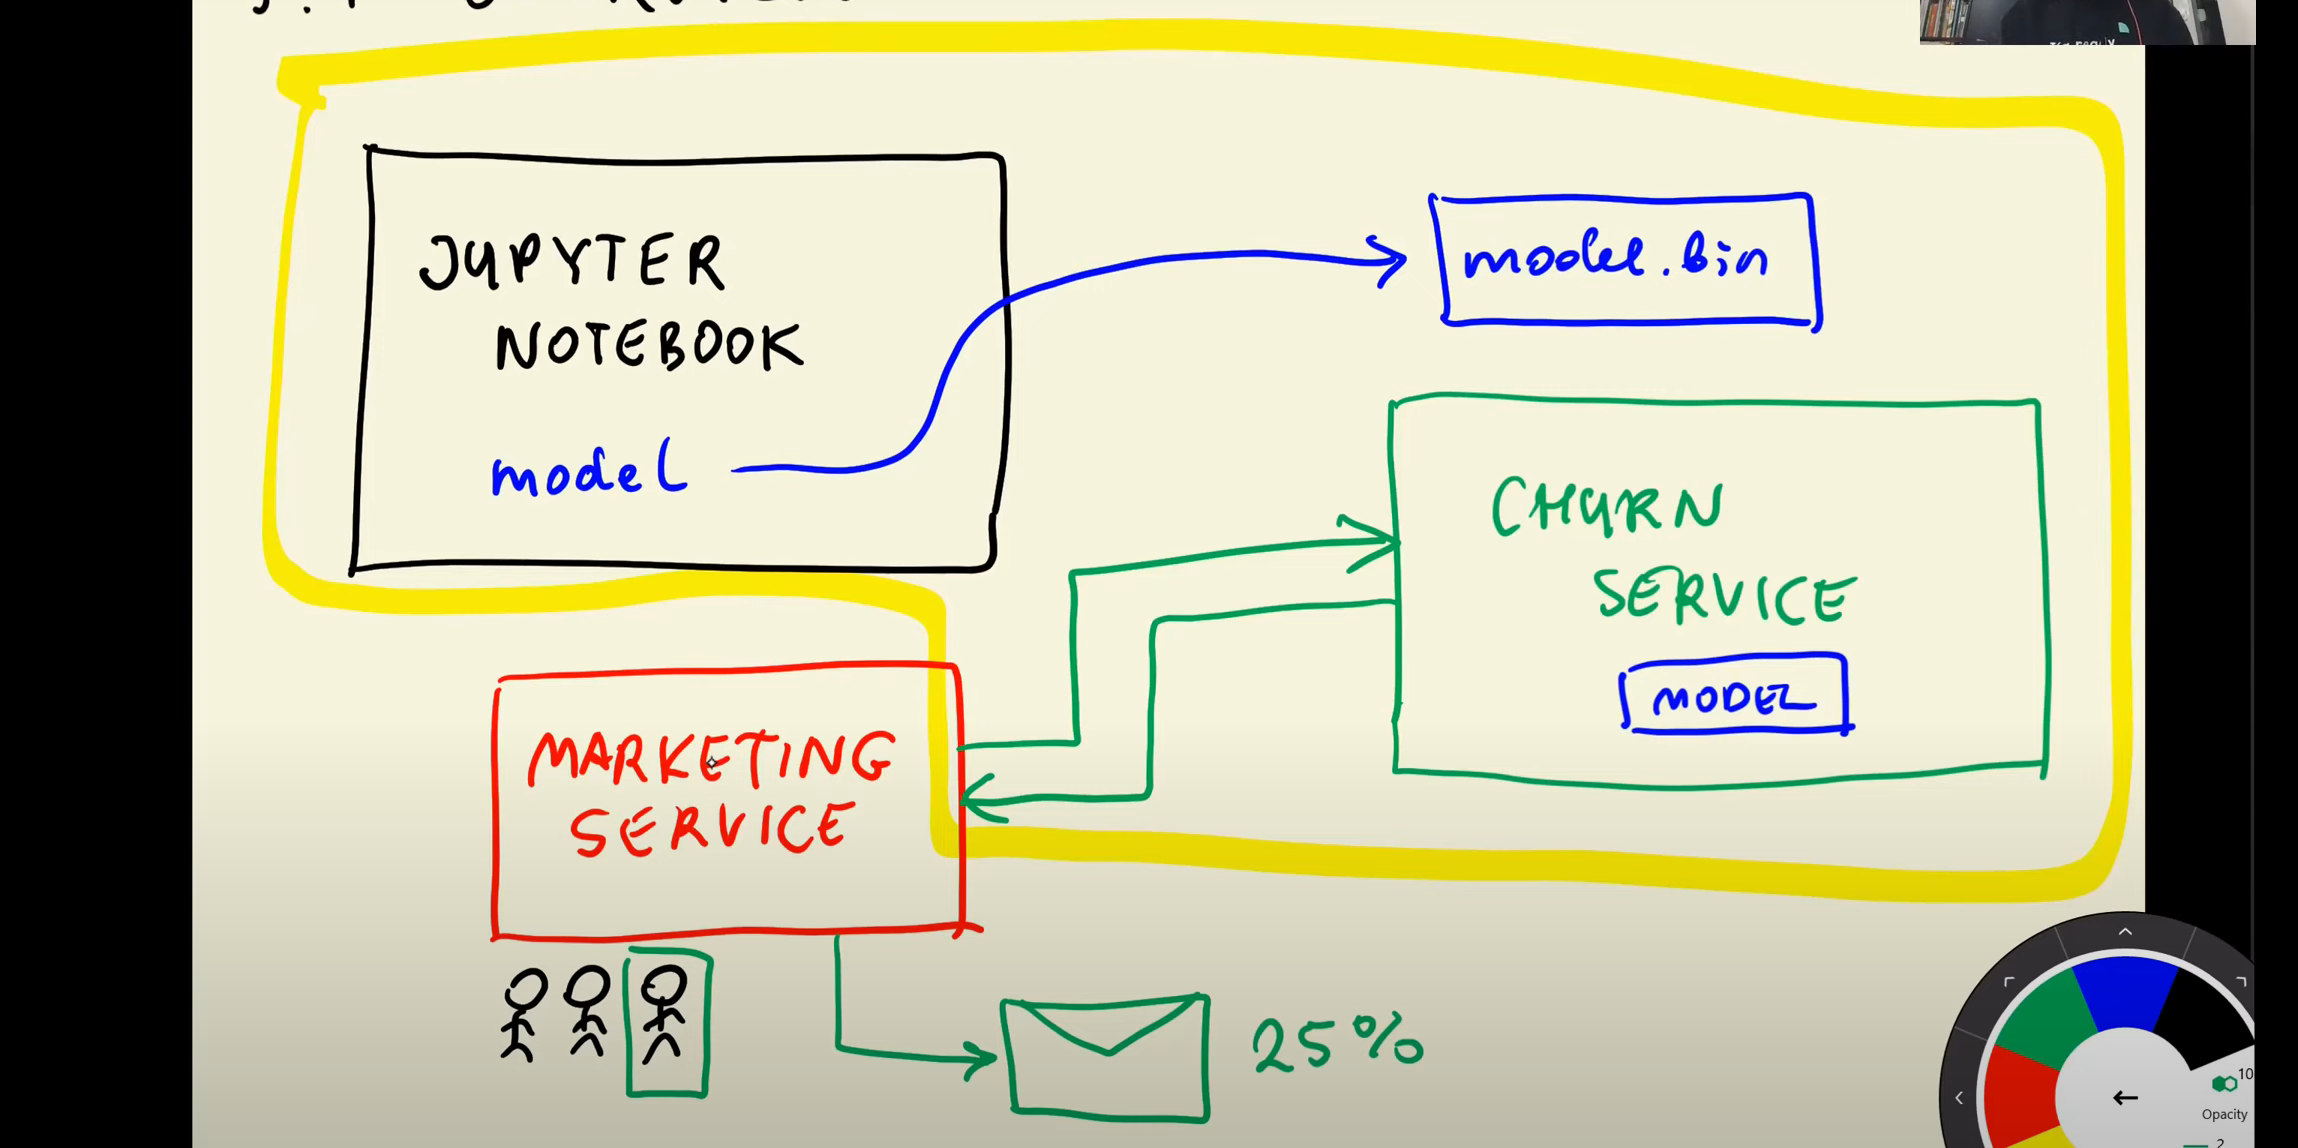 JUPYTER
NOTEBOOK
model
model.bin
CHURN
SERVICE
MODEL
MARKETING
SERVICE
25%
10
Opacity
2